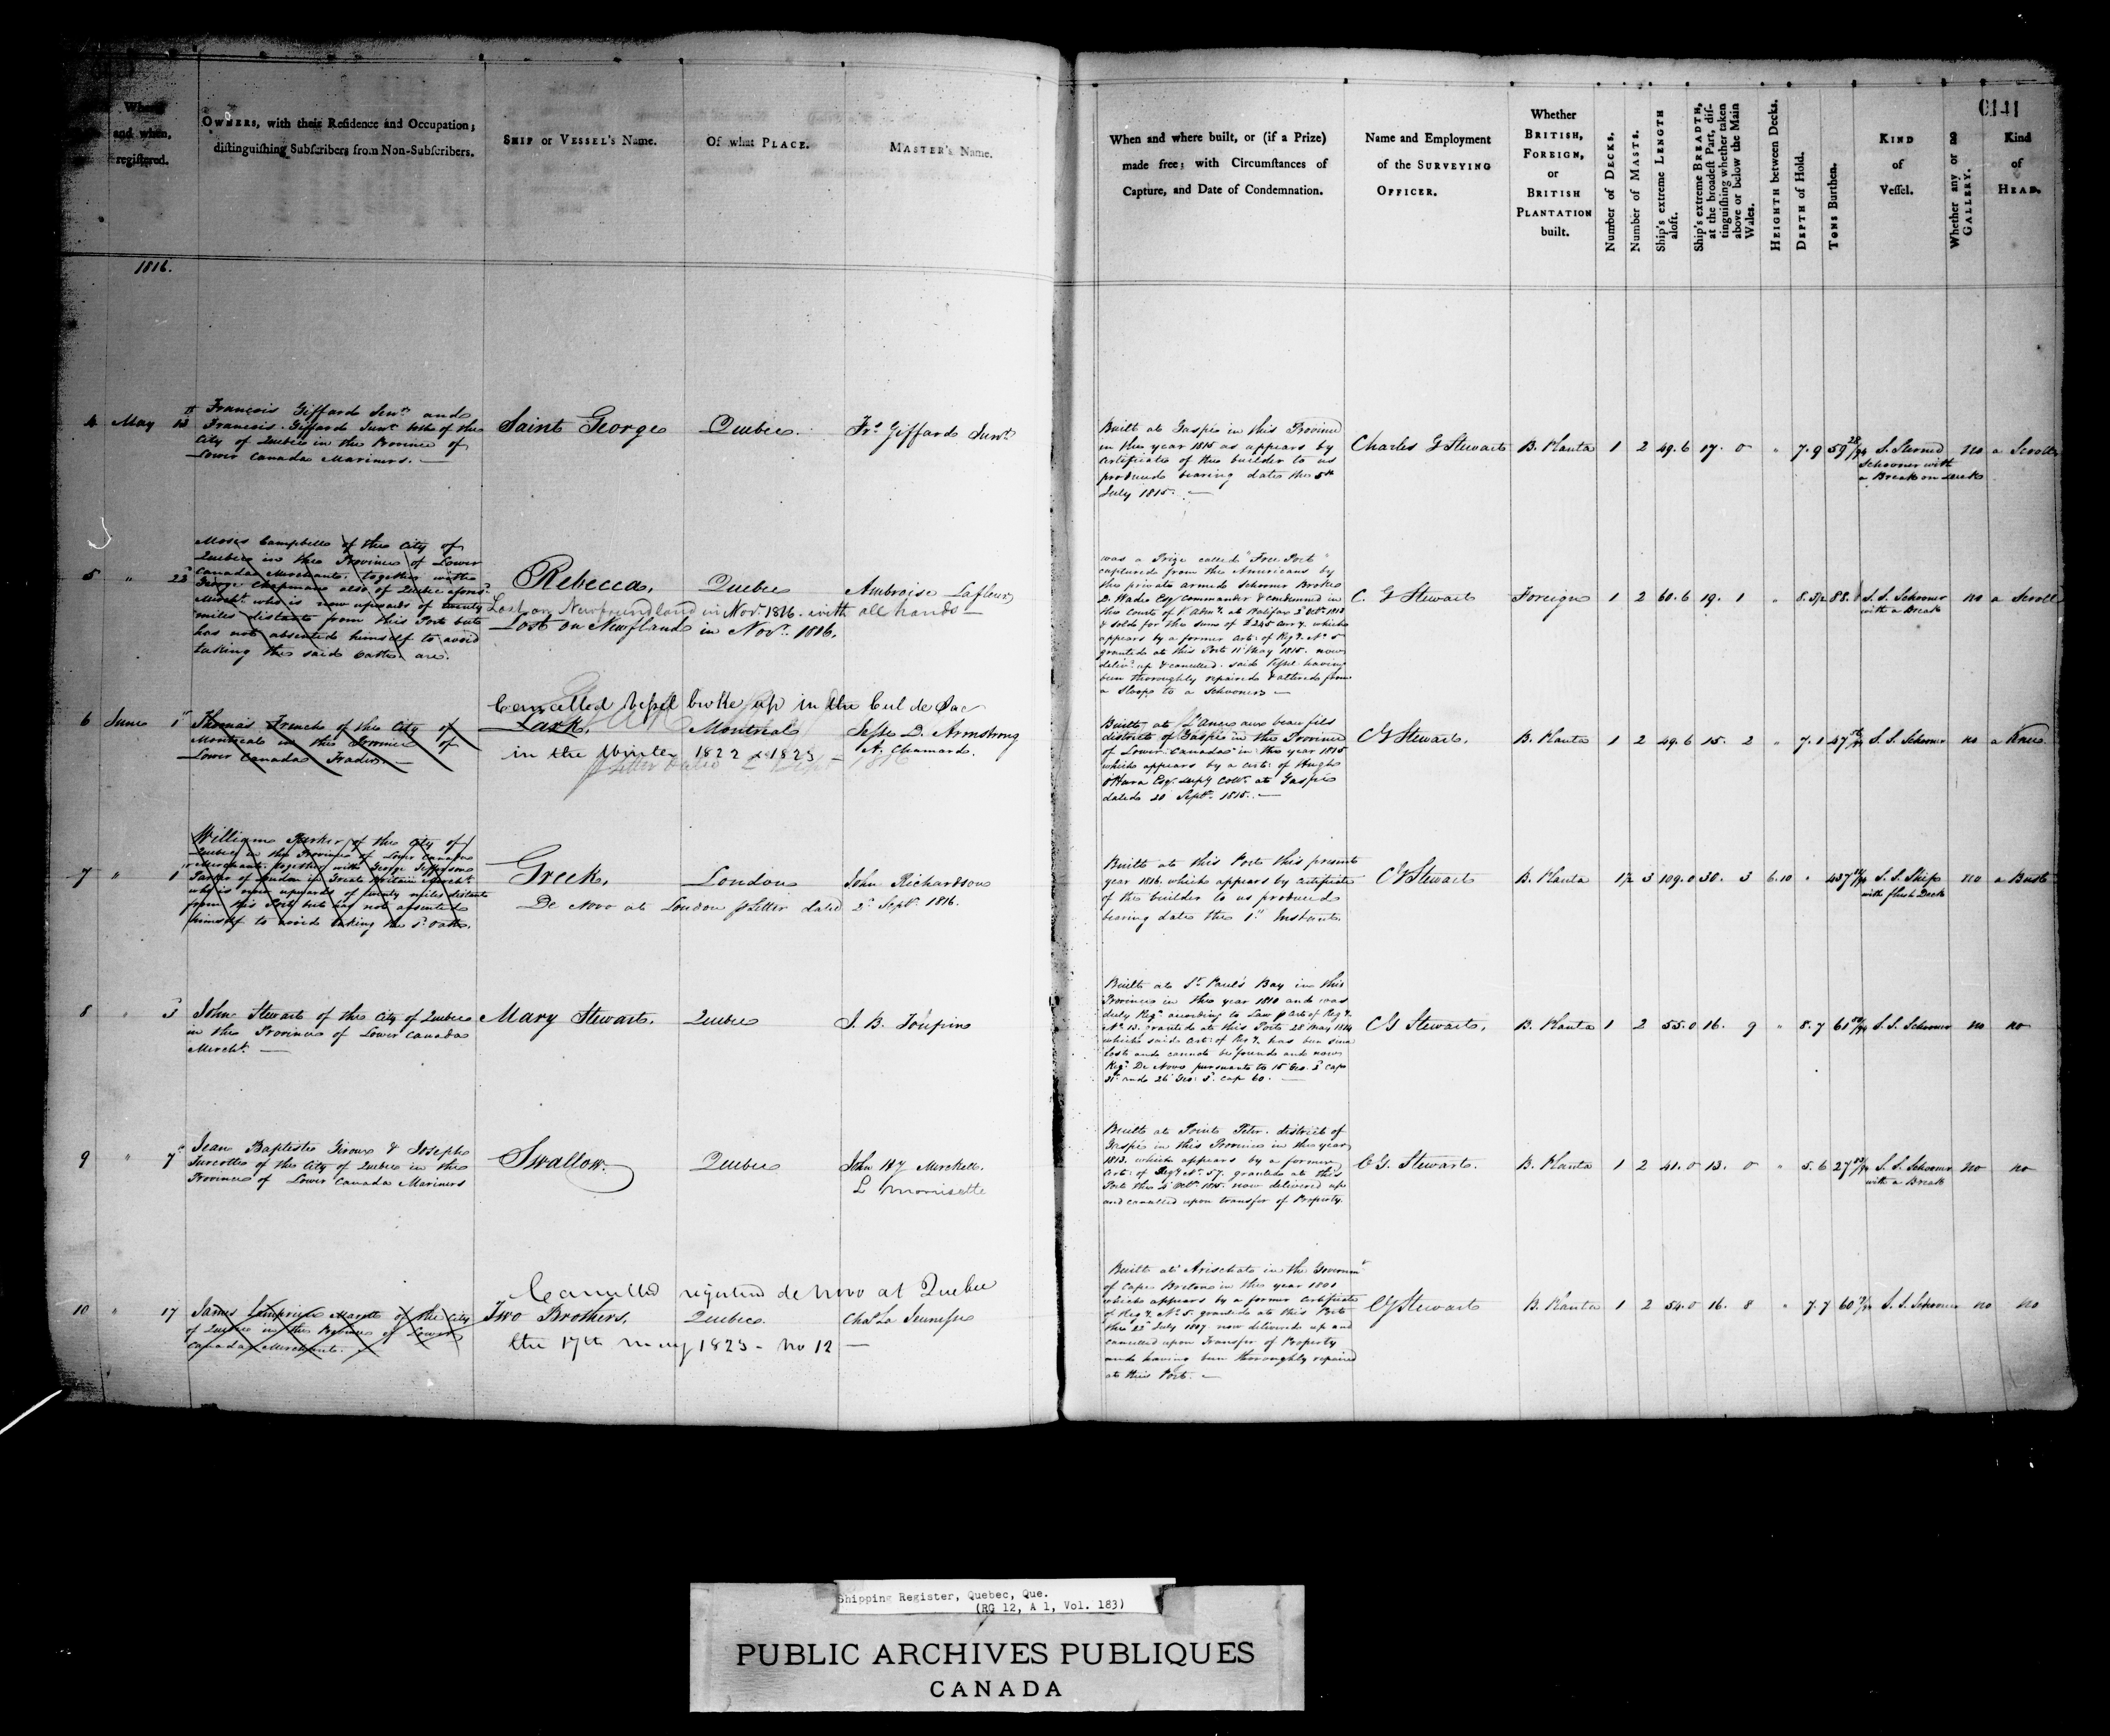 and when,
registered.
OWNERS, with their Residence and Occupation;
distinguishing Subscribers from Non-Subscribers.
SHIP or VESSEL's Name.
Of what PLACE.
MASTER's Name.
When and where built, or (if a Prize)
made free; with Circumstances of
Capture, and Date of Condemnation.
Name and Employment
of the SURVEYING
OFFICER.
Whether
BRITISH,
FOREIGN,
or
BRITISH
PLANTATION
built.
Number of DECKS.
Number of MASTS.
Ship's extreme LENGTH
aloft.
Ship's extreme BREADTH,
at the broadest Part, dis-
tinguishing whether taken
above or below the Main
Wales.
HEIGHTH between Decks.
DEPTH of Hold.
TONS Burthen.
KIND
of
Vessel.
Whether any or no
GALLERY.
Kind
of
HEAD.
1816.
4 May 13
François Giffard Senr. and
Francois Giffard Junr. both of the
City of Quebec in the Province of
Lower Canada Mariners. —
Saint George
Quebec.
Frs. Giffard Junr.
Built at Gaspé in this Province
in the year 1815 as appears by
Certificate of the builder to us
produced bearing date the 5th
July 1815. —
Charles G Stewart
B. Planta 1 2 49.6 17. 0 " 7.9 59 28/94
S. Sterned
Schooner with
a Break on deck
no a Scroll
5 " 22
Moses Campbell of the City of
Quebec in the Province of Lower
Canada Merchant. together with
George Chapman also of Quebec aforesd.
Mercht. who is now upwards of twenty
miles distant from this Port but
has not absented himself to avoid
taking the said Oath. are.
Rebecca,
Quebec
Ambroise Lafleur
Lost on Newfoundland in Nov. 1816. with all hands —
Lost on Newfland in Novr. 1816.
was a Prize called "Free Port"
captured from the Americans by
the private armed schooner Broke
D. Wade Esqr Commander & condemned in
the Court of V. Adm.y. at Halifax
& sold for the sum of £245 Curry. which
appears by a former Cert: of Regy. No. 5
granted at this Port 11 May 1815. now
delivd. up & cancelled. said Vessel having
been thoroughly repaired & altered from
a Sloop to a Schooner —
C. G Stewart
Foreign 1 2 60.6 19. 1 "
S. S. Schooner
with a Break
no a Scroll
Cancelled Vessel broke up in the Cul de Sac
6 June 1
Thomas French of the City of
Montreal in the Province of
Lower Canada Trader. —
Lark,
Montreal
Jesse D. Armstrong
A. Chamard.
in the Winter 1822 & 1823 —
Built at L'Ance aux beau fils
district of Gaspé in the Province
of Lower Canada in the year 1815
which appears by a Cert: of Hugh
O'Hara Esqr. Depy Collr. at Gaspé
dated 20 Septr. 1815. —
C G Stewart,
B. Planta 1 2 49.6 15. 2 " 7.1
S. S. Schooner no a Knee
7 " 1
William Parker of the City of
Quebec in the Province of Lower Canada
Merchant. together with George Jefferson
Parker of London in Great Britain Mercht.
who is now upwards of twenty miles distant
from this Port but has not absented
himself to avoid taking the sd. Oath.
Greek,
London
John Richardson
De Novo at London pr Letter dated 2d. Septr. 1816.
Built at this Port this present
year 1816. which appears by certificate
of the builder to us produced
bearing date the 1st Instant.
C G Stewart
B. Planta 1 1/2 3 109.0 30. 3 6.10 "
S. S. Ship
with flush Deck
no a Bust
8 " 3
John Stewart of the City of Quebec
in the Province of Lower Canada
Mercht. —
Mary Stewart.
Quebec
J. B. Toupin
Built at St. Paul's Bay in this
Province in the year 1810 and was
duly Regd. according to Law pr Cert: of Regy.
No. 13. granted at this Port 28 May 1814
which said Cert: of Regy. has been since
lost and cannot be found and now
Regd. De Novo pursuant to 15 Geo: 3d cap
31. and 26 Geo: 3. cap 60. —
C G Stewart,
B. Planta 1 2 55.0 16. 9 " 8.7
S. S. Schooner no no
9 " 7
Jean Baptiste Giroux & Joseph
Turcotte of the City of Quebec in the
Province of Lower Canada Mariners
Swallow.
Quebec
L Morrisette
Built at Point Peter. district of
Gaspé in this Province in the year
1813. which appears by a former
Cert: of Regy. No. 57. granted at this
Port the 4 Octr. 1815. now delivered up
and cancelled upon transfer of Property.
C G. Stewart.
B. Planta 1 2 41.0 13. 0 " 5.6
S. S. Schooner
with a Break
no no
Cancelled registered de novo at Quebec
10 " 17
of the City
of Quebec in the Province of Lower
Canada Merchant.
Two Brothers,
Quebec.
Chas. La Jeunesse
the 17th May 1823 - No 12 —
Built at Arischat in the Governmt.
of Cape Breton in the year 1801
which appears by a former Certificate
of Regy. No. 5. granted at this Port
the 22 July 1807 now delivered up and
cancelled upon Transfer of Property
and having been thoroughly repaired
at this Port. —
C G Stewart
B. Planta 1 2 54.0 16. 8 " 7.7
S. S. Schooner no no
Shipping Register, Quebec, Que.
(RG 12, A 1, Vol. 183)
PUBLIC ARCHIVES PUBLIQUES
CANADA